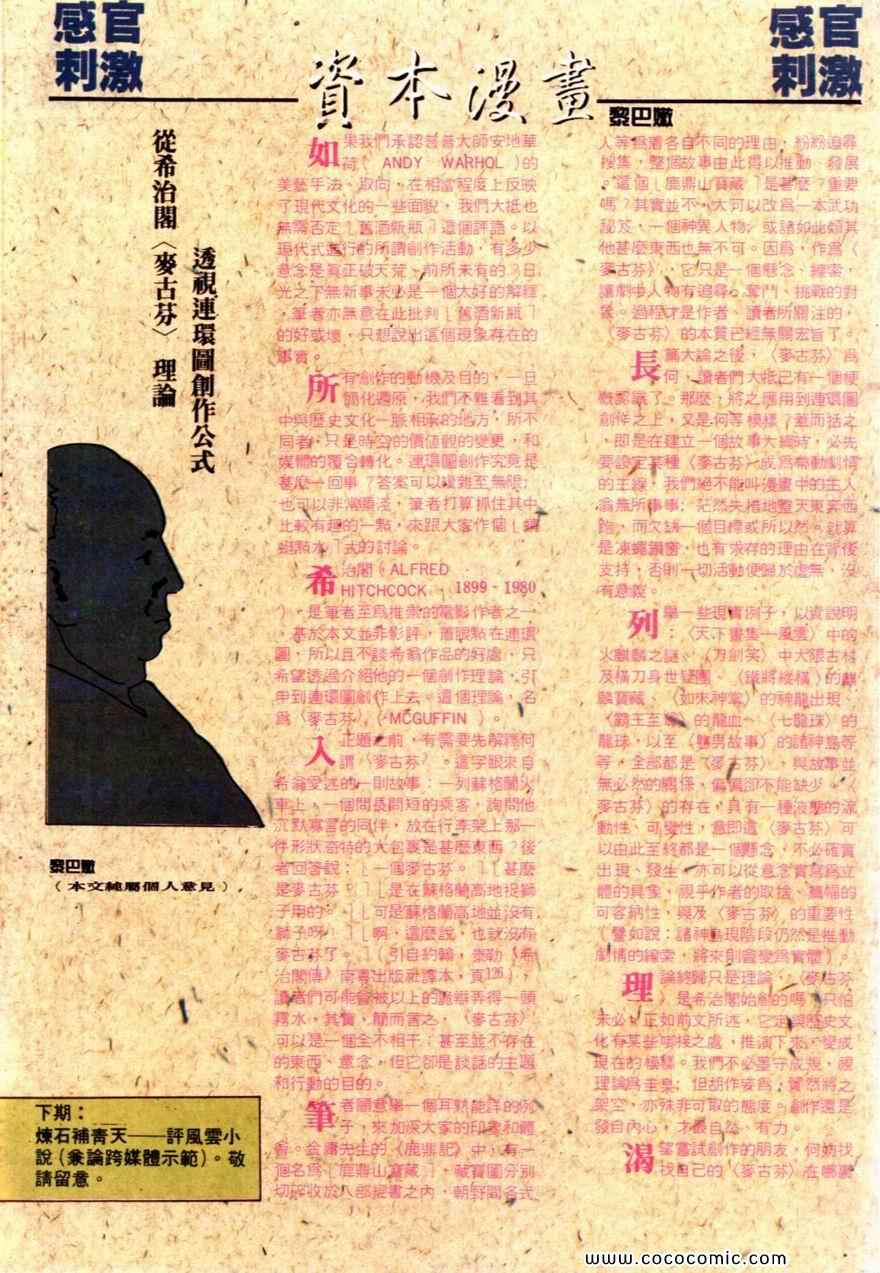 感官
刺激
資本漫畫
感官
刺激
黎巴嫩
從希治閣〈麥古芬〉理論
透視連環圖創作公式
如果我們承認普普大師安地華
荷（ANDY WARHOL）的
美藝手法、取向，在相當程度上反映
了現代文化的一些面貌，我們大抵也
無需否定「舊酒新瓶」這個評語。以
現代式進行的所謂創作活動，有多少
意念是真正破天荒、前所未有的？日
光之下無新事未必是一個太好的解釋
，筆者亦無意在此批判「舊酒新瓶」
的好或壞，只想說出這個現象存在的
事實。
所有創作的動機及目的，一旦
簡化還原，我們不難看到其
中與歷史文化一脈相承的地方，所不
同者，只是時空的價值觀的變更，和
媒體的覆合轉化。連環圖創作究竟是
甚麼一回事？答案可以複雜至無限；
也可以非常顯淺，筆者打算抓住其中
比較有趣的一點，來跟大家作個「蜻
蜓點水」式的討論。
希治閣（ALFRED
HITCHCOCK 1899-1980
），是筆者至爲推崇的電影作者之一
，基於本文並非影評，着眼點在連環
圖，所以且不談希翁作品的好處，只
希望透過介紹他的一個創作理論，引
申到連環圖創作上去。這個理論，名
爲〈麥古芬〉（MCGUFFIN）。
入正題之前，有需要先解釋何
謂〈麥古芬〉。這字眼來自
希翁愛述的一則故事：一列蘇格蘭火
車上，一個問長問短的乘客，詢問他
沉默寡言的同伴，放在行李架上那一
件形狀奇特的大包裹是甚麼東西？後
者回答說：「一個麥古芬。」「甚麼
是麥古芬？」「是在蘇格蘭高地捉獅
子用的。」「可是蘇格蘭高地並沒有
獅子呀！」「啊，這麼說，也就沒有
麥古芬了。」（引自約翰．泰勒《希
治閣傳》南粵出版社譯本，頁126），
讀者們可能會被以上的詭辯弄得一頭
霧水，其實，簡而言之，〈麥古芬〉
可以是一個全不相干；甚至並不存在
的東西、意念，但它卻是談話的主題
和行動的目的。
筆者願意舉一個耳熟能詳的例
子，來加深大家的印象和體
會。金庸先生的《鹿鼎記》中，有一
個名爲「鹿鼎山寶藏」，藏寶圖分別
切碎收於八部經書之內，朝野間各式
人等爲着各自不同的理由，紛紛追尋
搜集，整個故事由此得以推動、發展
。這個「鹿鼎山寶藏」是甚麼？重要
嗎？其實並不，大可以改爲一本武功
秘笈，一個神異人物；或諸如此類其
他甚麼東西也無不可。因爲，作爲〈
麥古芬〉，它只是一個懸念、線索，
讓劇中人物有追尋、奪鬥、挑戰的對
象。過程才是作者、讀者所關注的，
〈麥古芬〉的本質已經無關宏旨了。
長篇大論之後，〈麥古芬〉爲
何，讀者們大抵已有一個梗
概認識了。那麼，將之應用到連環圖
創作之上，又是何等模樣？蓋而括之
，即是在建立一個故事大綱時，必先
要設定某種〈麥古芬〉成爲帶動劇情
的主線，我們絕不能叫漫畫中的主人
翁無所事事；茫然失措地整天東奔西
跑，而欠缺一個目標或所以然。就算
是凍蠅鑽窗，也有求存的理由在背後
支持，否則一切活動便歸於虛無，沒
有意義。
列舉一些現實例子，以資說明
：〈天下畫集─風雲〉中的
火麒麟之謎、〈刀劍笑〉中大銀古材
及橫刀身世疑團、〈鐵將縱橫〉的麒
麟寶藏、〈如來神掌〉的神龍出現、
〈霸王至尊〉的龍血、〈七龍珠〉的
龍珠，以至〈魅男故事〉的諸神島等
等，全部都是〈麥古芬〉，與故事並
無必然的關係，偏偏卻不能缺少。〈
麥古芬〉的存在，具有一種液態的流
動性、可變性，意即這〈麥古芬〉可
以由此至終都是一個懸念，不必確實
出現、發生，亦可以從意念實寫爲立
體的具象，視乎作者的取捨、篇幅的
可容納性，與及〈麥古芬〉的重要性
（譬如說：諸神島現階段仍然是推動
劇情的線索，將來則會變爲實體）。
理論終歸只是理論，〈麥古芬
〉是希治閣始創的嗎？只怕
未必，正如前文所述，它定與歷史文
化有某些啣接之處，推演下來，變成
現在的模樣。我們不必墨守成規，視
理論爲圭臬；但胡作妄爲，貿然將之
架空，亦殊非可取的態度。創作還是
發自內心，才最自然、有力。
渴望嘗試創作的朋友，何妨找
找自己的〈麥古芬〉在哪裏
黎巴嫩
（本文純屬個人意見）
下期：
煉石補青天——評風雲小
說（兼論跨媒體示範）。敬
請留意。
www.cococomic.com